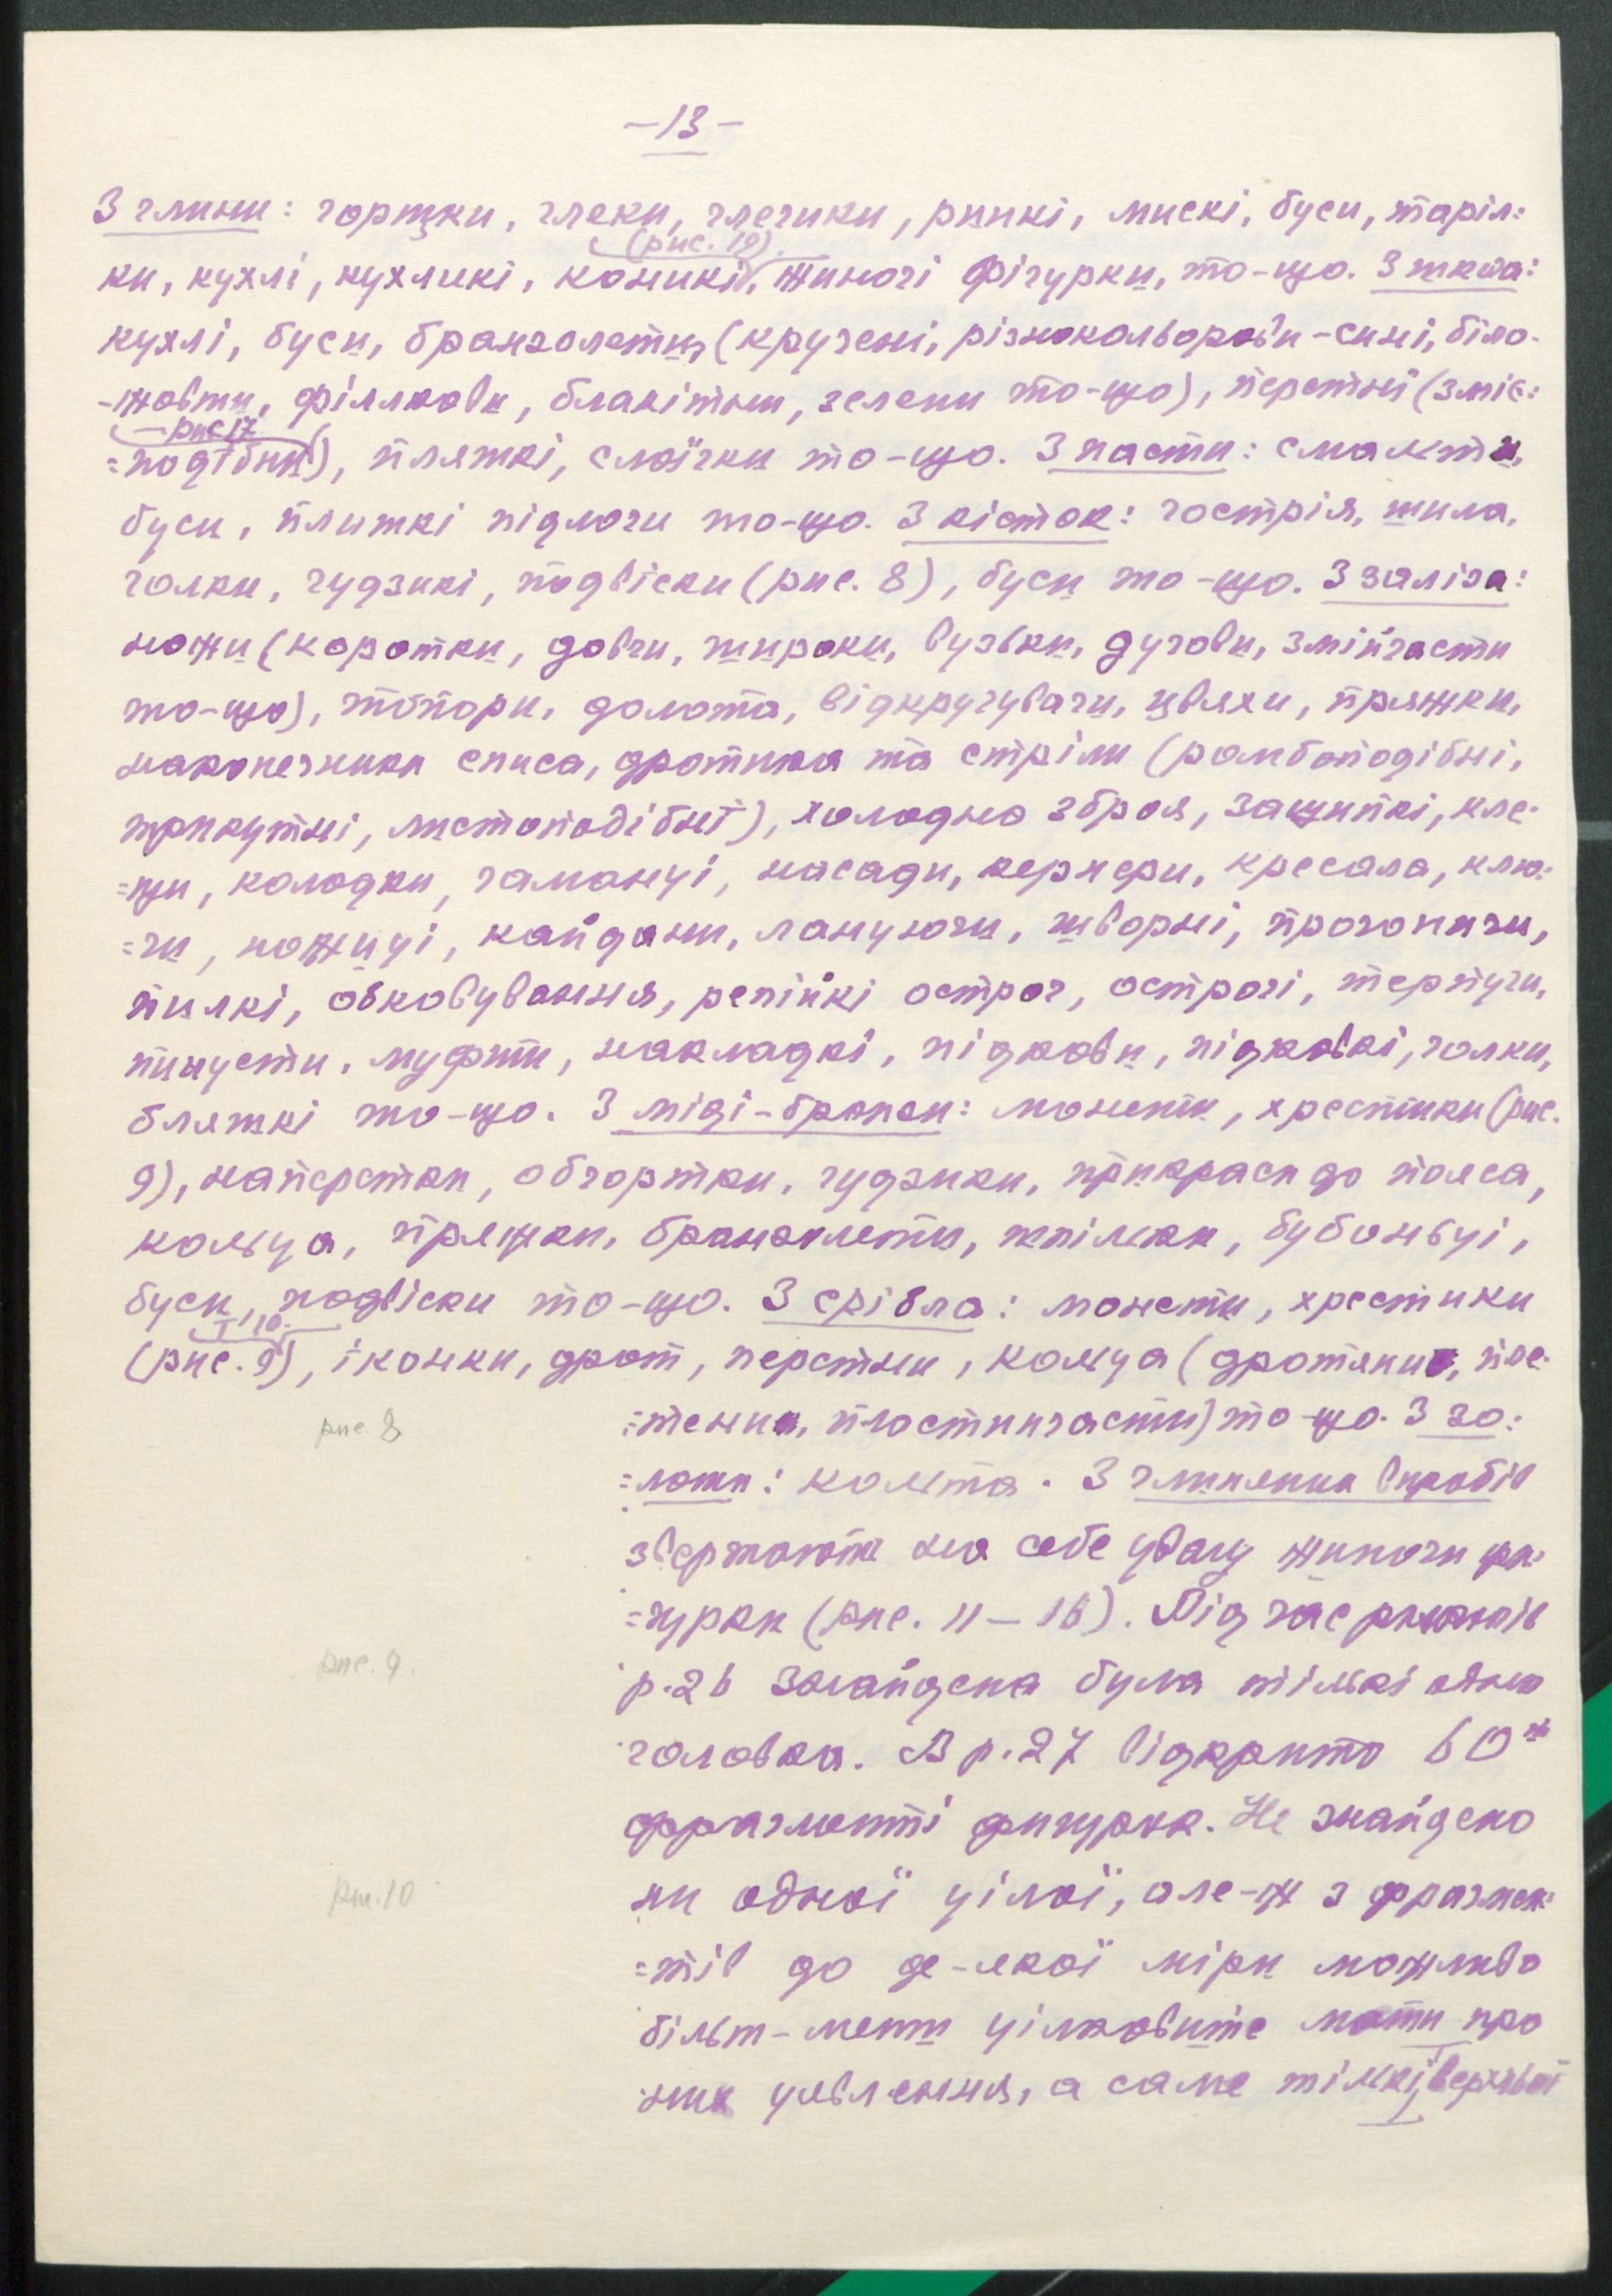 –13–
З глини: горщки, глеки, глечики, ринкі, мискі, буси, таріл=
(рис. 19)
ки, кухлі, кухликі, коникі, жиночі фігурки, то-що. З шкла:
кухлі, буси, бранзолети, (кручені, різнокольорови-сині, біло-
-жовти, фіялкови, блакітни, зелени то-що), перстні (зміє=
рис 17
=подібни), пляшкі, слоїчки то-що. З пасти: смальти,
буси, плиткі підлоги то-що. З кісток: гострія, шила,
голки, гудзикі, подвіски (рис. 8), буси то-що. З заліза:
ножи (коротки, довги, широки, вузьки, дугови, змійчасти
то-що), топори, долота, відкручувачи, цвяхи, пряжки,
наконечники списа, дротика та стріли (ромбоподібні,
трикутні, листоподібні), холодна зброя, защипкі, кле-
=щи, колодки, гаманці, насади, кернери, кресала, клю=
=чи, ножиці, кайдани, ланцюги, шворні, прогоничи,
пилкі, обковування, репійкі острог, строгі, терпуги,
пинцети, муфти, накладкі, підкови, підковкі, голки,
бляшкі то-що. З міді-бронзи: монети, хрестики (рис.
9), наперстки, обгортки, гудзики, прикраси до пояса,
кольца, пряжки, бранзолети, шпільки, бубоньці,
буси, подвіски то-що. З срібла: монети, хрестики
і 10.
(рис. 9), іконки, дрот, перстни, кольца (дротяни, пле-
рис. 8
=тени, пластинчасти) то-що. З зо=
=лота: кольта. З глиняних виробів
звертають на себе увагу жиночи фі=
=гурки (рис. 11–16). Під час
рис. 9.
р. 26 знайдена була тількі одна
головка. В р. 27 відкрито 60
фрагменті фигурок. Не знайдено
рис. 10
ни одної цілої, але-ж з фрагмен=
=тів до де-якої міри можливо
більш-менш цілковите мати про
них уявлення, а саме тількі верхньої